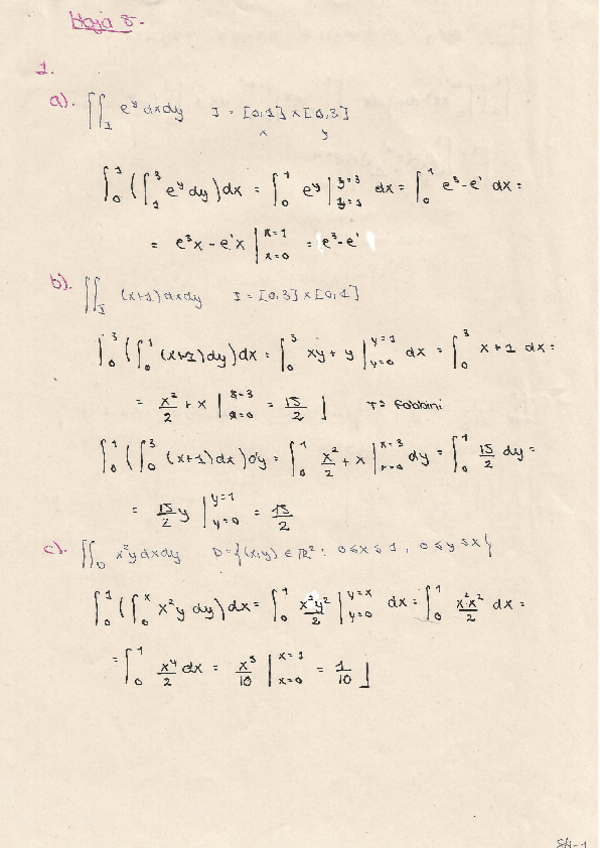 Hoja 8.
1.
a). ∬_I e^y dxdy I = [0,1] x [1,3]
x y
∫_0^1 (∫_1^3 e^y dy) dx = ∫_0^1 e^y |_{y=1}^{y=3} dx = ∫_0^1 e^3 - e^1 dx =
= e^3x - e^1x |_{x=0}^{x=1} = e^3 - e^1
b). ∬_I (x+1) dxdy I = [0,3] x [0,1]
∫_0^3 (∫_0^1 (x+1) dy) dx = ∫_0^3 xy + y |_{y=0}^{y=1} dx = ∫_0^3 x+1 dx =
= x^2/2 + x |_{x=0}^{x=3} = 15/2 ⌋ Tª Fobbini
∫_0^1 (∫_0^3 (x+1) dx) dy = ∫_0^1 x^2/2 + x |_{x=0}^{x=3} dy = ∫_0^1 15/2 dy =
= 15/2 y |_{y=0}^{y=1} = 15/2
c). ∬_D x^2y dxdy D = {(x,y) ∈ ℝ^2 : 0≤x≤1, 0≤y≤x}
∫_0^1 (∫_0^x x^2y dy) dx = ∫_0^1 x^2y^2/2 |_{y=0}^{y=x} dx = ∫_0^1 x^2·x^2/2 dx =
= ∫_0^1 x^4/2 dx = x^5/10 |_{x=0}^{x=1} = 1/10 ⌋